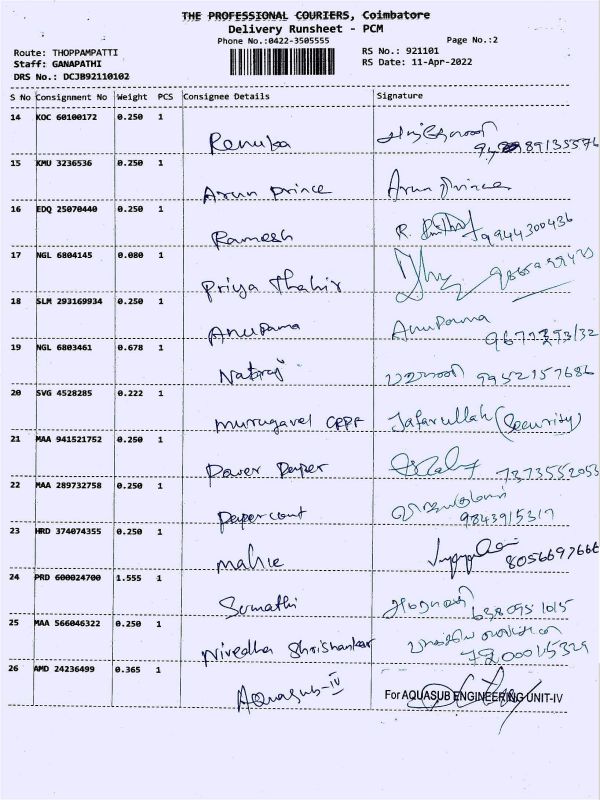 THE PROFESSIONAL COURIERS, Coimbatore
Delivery Runsheet - PCM
Phone No.:0422-3505555
Page No.:2
Route: THOPPAMPATTI
RS No.: 921101
Staff: GANAPATHI
RS Date: 11-Apr-2022
DRS No.: DCJB92110102
S No Consignment No Weight PCS Consignee Details Signature
14 KOC 60100172 0.250 1
Renuka
15 KMU 3236536 0.250 1
Arun prince Arun Prince
16 EDQ 25070440 0.250 1
Ramesh 9944300436
17 NGL 6804145 0.080 1
Priya Thahir
18 SLM 293169934 0.250 1
Anupama Anupama
19 NGL 6803461 0.678 1
Nataraj 9952157686
20 SVG 4528285 0.222 1
Murugavel CRPF Jafarullah (Security)
21 MAA 941521752 0.250 1
Power Paper 7373552053
22 MAA 289732758 0.250 1
Papercont 9843915317
23 HRD 374074355 0.250 1
Mahie 8056697666
24 PRD 600024700 1.555 1
Sumathi 6380951015
25 MAA 566046322 0.250 1
Nivedha Shrishankar
26 AMD 24236499 0.365 1
Aquasub-IV For AQUASUB ENGINEERING UNIT-IV